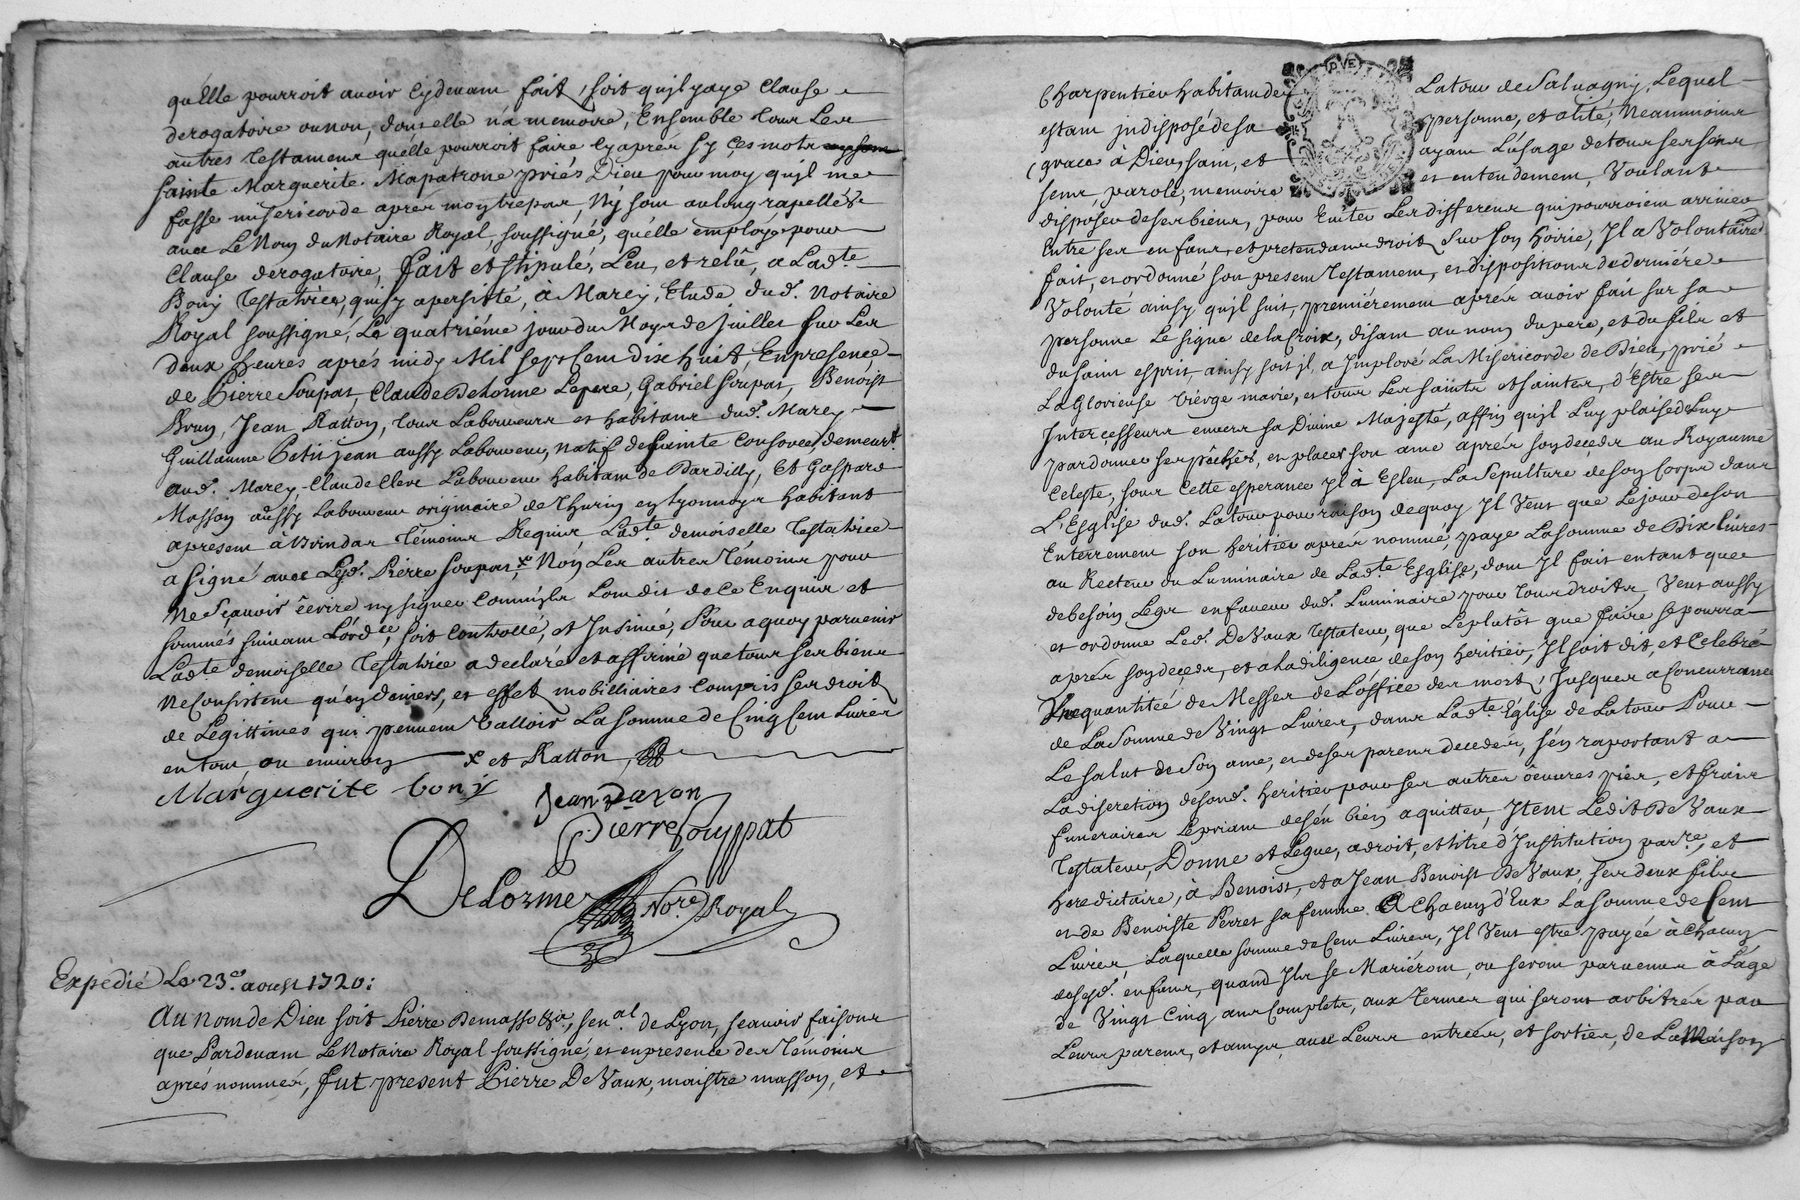 qu'elle pourroit avoir cydevant fait, soit qu'jl y aye Clause
derogatoire ou non, dont elle n'a memoire, Ensemble tous Les
autres testamens quelle pourroit faire cy aprés sy çes mots
sainte Marguerite Ma patrone priés Dieu pour moy qu'jl me
fasse misericorde aprés mon trepas, N'y sont au long rapellés
avec Le Nom du Notaire Royal soussigné, qu'élle employe pour
Clause derogatoire, fait et stipulé, Leu, et relû, a Ladte
Bony Testatrice, qui y a persisté, à Marcy, Etude dud. Notaire
Royal soussigné, Le quatriéme jour du Moys de juillet sur Les
deux heures aprés midy Mil sept Cent dix huit, En presence
de Pierre Soupat, Claude Dehonne Le pere, Gabriel Soupat, Benoist
Brun, Jean Ratton, tous Laboureurs et habitans dud. Marcy
Guillaume Petit jean aussy Laboureur, natif de sainte Consorce, demeurt
aud. Marcy, Claude Clerc Laboureur habitant de Dardilly, Et Gaspard
Masson aussy Laboureur originaire de Thurin en lyonnoys habitant
apresent à Brindas témoins Requis, Ladte demoiselle testatrice
a signé avec Led. Pierre Soupat, x Non Les autres témoins pour
Ne sçavoir êcrire ny signer Comm'jls L'ont dit de Ce Enquis et
sommés suivant L'ordce, soit Controllé, et Insinué, Pour a quoy parvenir
Ladte demoiselle Testatrice a declaré et affirmé que tous ses biens
Ne Consistent qu'en deniers, et effets mobilliaires Compris ses droits
de Legittimes qui peuvent valloir La somme de Cinq Cent Livres
en tout ou environ x et Ratton
Marguerite bony
Jean Raton
Pierre Souppat
Delorme
Nore Royal
Expedié Le 23e aoust 1720:
Au nom de Dieu soit Pierre Demasso &a, senal de Lyon, sçavoir faisons
que Pardevant Le Notaire Royal soussigné, et en presence des témoins
aprés nommés, fut present Pierre DeVaux, maistre masson, et
Charpentier habitant de Latour de Salvagny, Lequel
estant jndisposé de sa personne, et alité, Neanmoins
(grace à Dieu) sain, et ayant L'usage de tous ses sens
sens, parole, memoire et entendement, Voulant
disposer de ses biens, pour Eviter Les differens qui pourroient arriver
Entre ses enfans, et pretendans droits sur son hoirie, Il a Volontairet
fait, et ordonné son present testament, et dispositions de derniére
Volonté ainsy qu'jl suit, premiérement aprés avoir fait sur sa
personne Le signe de la Croix, disant au nom du pere, et du fils et
du saint esprit, ainsy soit jl, a Imploré La Misericorde de Dieu, prié
La Glorieuse viérge marie, et tous Les saints et saintes, d'Estre ses
Interçesseurs envers sa Divine Majesté, affin qu'jl Luy plaise de Luy
pardonner ses pêchés, et placer son ame aprés son deçeds au Royaume
Celeste, sous cette esperance Jl à Esleu, La sepulture de son Corps dans
L'Esglise dud. Latour pour raison de quoy Jl Veut que Le jour de son
Enterrement son heritier aprés nommé, paye La somme de Dix livres
au Recteur du Luminaire de Ladte Esglise, dont Jl fait entant que
de besoin Legs en faveur dud. Luminaire pour tous droits, Veut aussy
et ordonne Led. DeVaux testateur, que Le plutôt que faire se pourra
aprés son deçeds, et a la diligence de son heritier, Il soit dit, et Celebré
Une quantitée de Messes de L'office des morts, jusques a Concurrance
de La somme de Vingt Livres, dans Ladte Église de Latour Pour
Le salut de Son ame, et de ses parens decedés, s'en raportant a
La discretion de sond. heritier pour ses autres oeuvres pies, et frais
funeraires Le priant de s'en bien aquitter, Item Ledit DeVaux
Testateur, Donne et Legue, a droit, et titre d'Institution parre, et
Heredictaire, à Benoist, et a Jean Benoist DeVaux, ses deux fils
et de Benoiste Perret sa femme A Chacun d'Eux La somme de Cent
Livres, Laquelle somme de Cent Livres, Jl Veut estre payée à Chacun
de sesd. enfans, quand Jls se Marièront, ou seront parvenus à L'âge
de Vingt Cinq ans Complets, aux termes qui seront arbitrés par
Leurs parens, et amys, avec Leurs entreés, et sorties, de La Maison